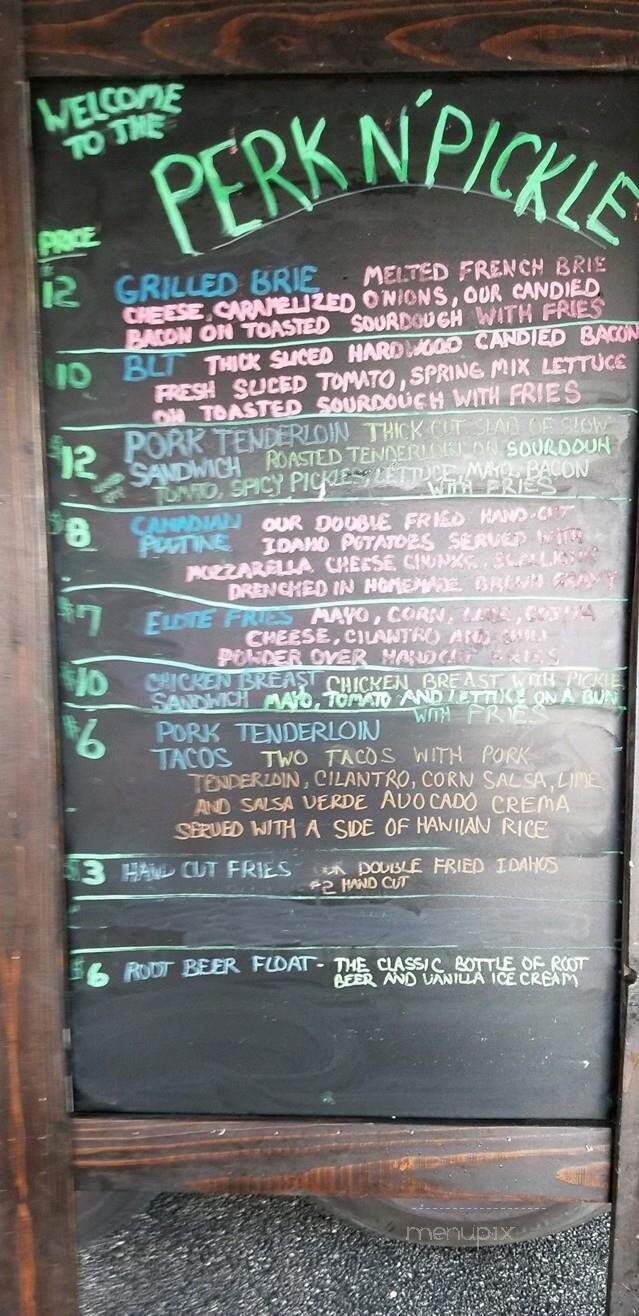 WELCOME
TO THE
PERK N' PICKLE
PRICE
$12 GRILLED BRIE MELTED FRENCH BRIE
CHEESE, CARAMELIZED ONIONS, OUR CANDIED
BACON ON TOASTED SOURDOUGH WITH FRIES
10 BLT THICK SLICED HARDWOOD CANDIED BACON
FRESH SLICED TOMATO, SPRING MIX LETTUCE
ON TOASTED SOURDOUGH WITH FRIES
$12 PORK TENDERLOIN THICK CUT SLAB OF SLOW
SANDWICH ROASTED TENDERLOIN ON SOURDOUH
TOMATO, SPICY PICKLES, LETTUCE, MAYO, BACON
WITH FRIES
$8 CANADIAN OUR DOUBLE FRIED HAND-CUT
POUTINE IDAHO POTATOES SERVED WITH
MOZZARELLA CHEESE CHUNKS,
DRENCHED IN HOMEMADE BROWN GRAVY
$7 ELOTE FRIES MAYO, CORN, LIME, COTIJA
CHEESE, CILANTRO AND CHILI
POWDER OVER HANDCUT FRIES
$10 CHICKEN BREAST CHICKEN BREAST WITH PICKLE
SANDWICH MAYO, TOMATO AND LETTUCE ON A BUN
WITH FRIES
$6 PORK TENDERLOIN
TACOS TWO TACOS WITH PORK
TENDERLOIN, CILANTRO, CORN SALSA, LIME
AND SALSA VERDE AVOCADO CREMA
SERVED WITH A SIDE OF HAWIIAN RICE
$3 HAND CUT FRIES OUR DOUBLE FRIED IDAHOS
#2 HAND CUT
$6 ROOT BEER FLOAT - THE CLASSIC BOTTLE OF ROOT
BEER AND VANILLA ICE CREAM
menupix